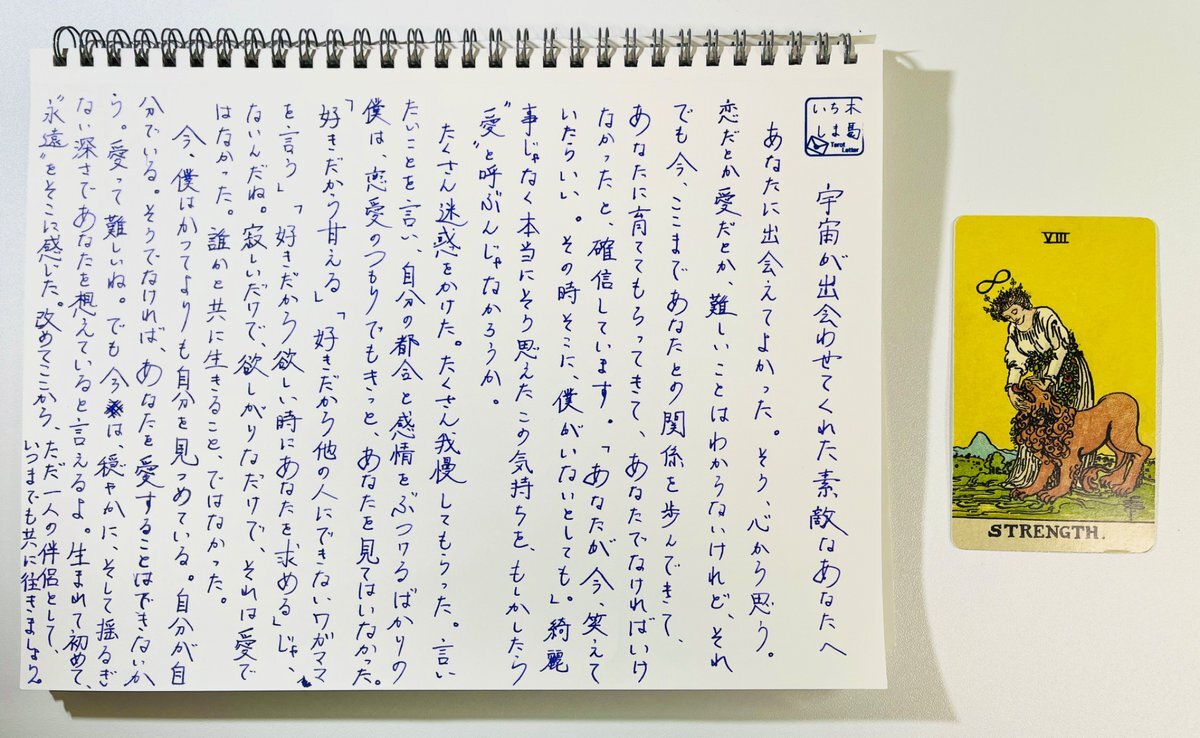 いち木
しま葛
Tarot
Letter
宇宙が出会わせてくれた素敵なあなたへ
あなたに出会えてよかった。そう、心から思う。
恋だとか愛だとか、難しいことはわからないけれど、それ
でも今、ここまであなたとの関係を歩んできて、
あなたに育ててもらってきて、あなたでなければいけ
なかったと、確信しています。「あなたが今、笑えて
いたらいい。その時そこに、僕がいないとしても」綺麗
事じゃなく本当にそう思えたこの気持ちを、もしかしたら
“愛”と呼ぶんじゃなかろうか。
たくさん迷惑をかけた。たくさん我慢してもらった。言い
たいことを言い、自分の都合と感情をぶつけるばかりの
僕は、恋愛のつもりでもきっと、あなたを見てはいなかった。
「好きだから甘える」「好きだから他の人にできないワガママ
を言う」「好きだから欲しい時にあなたを求める」じゃ、
ないんだね。寂しいだけで、欲しがりなだけで、それは愛で
はなかった。誰かと共に生きること、ではなかった。
今、僕はかつてよりも自分を見つめている。自分が自
分でいる。そうでなければ、あなたを愛することはできないか
ら。愛って難しいね。でも今は、穏やかに、そして揺るぎ
ない深さであなたを想えていると言えるよ。生まれて初めて、
“永遠”をそこに感じた。改めてここから、ただ一人の伴侶として、
いつまでも共に往きましょう。
VIII
STRENGTH.